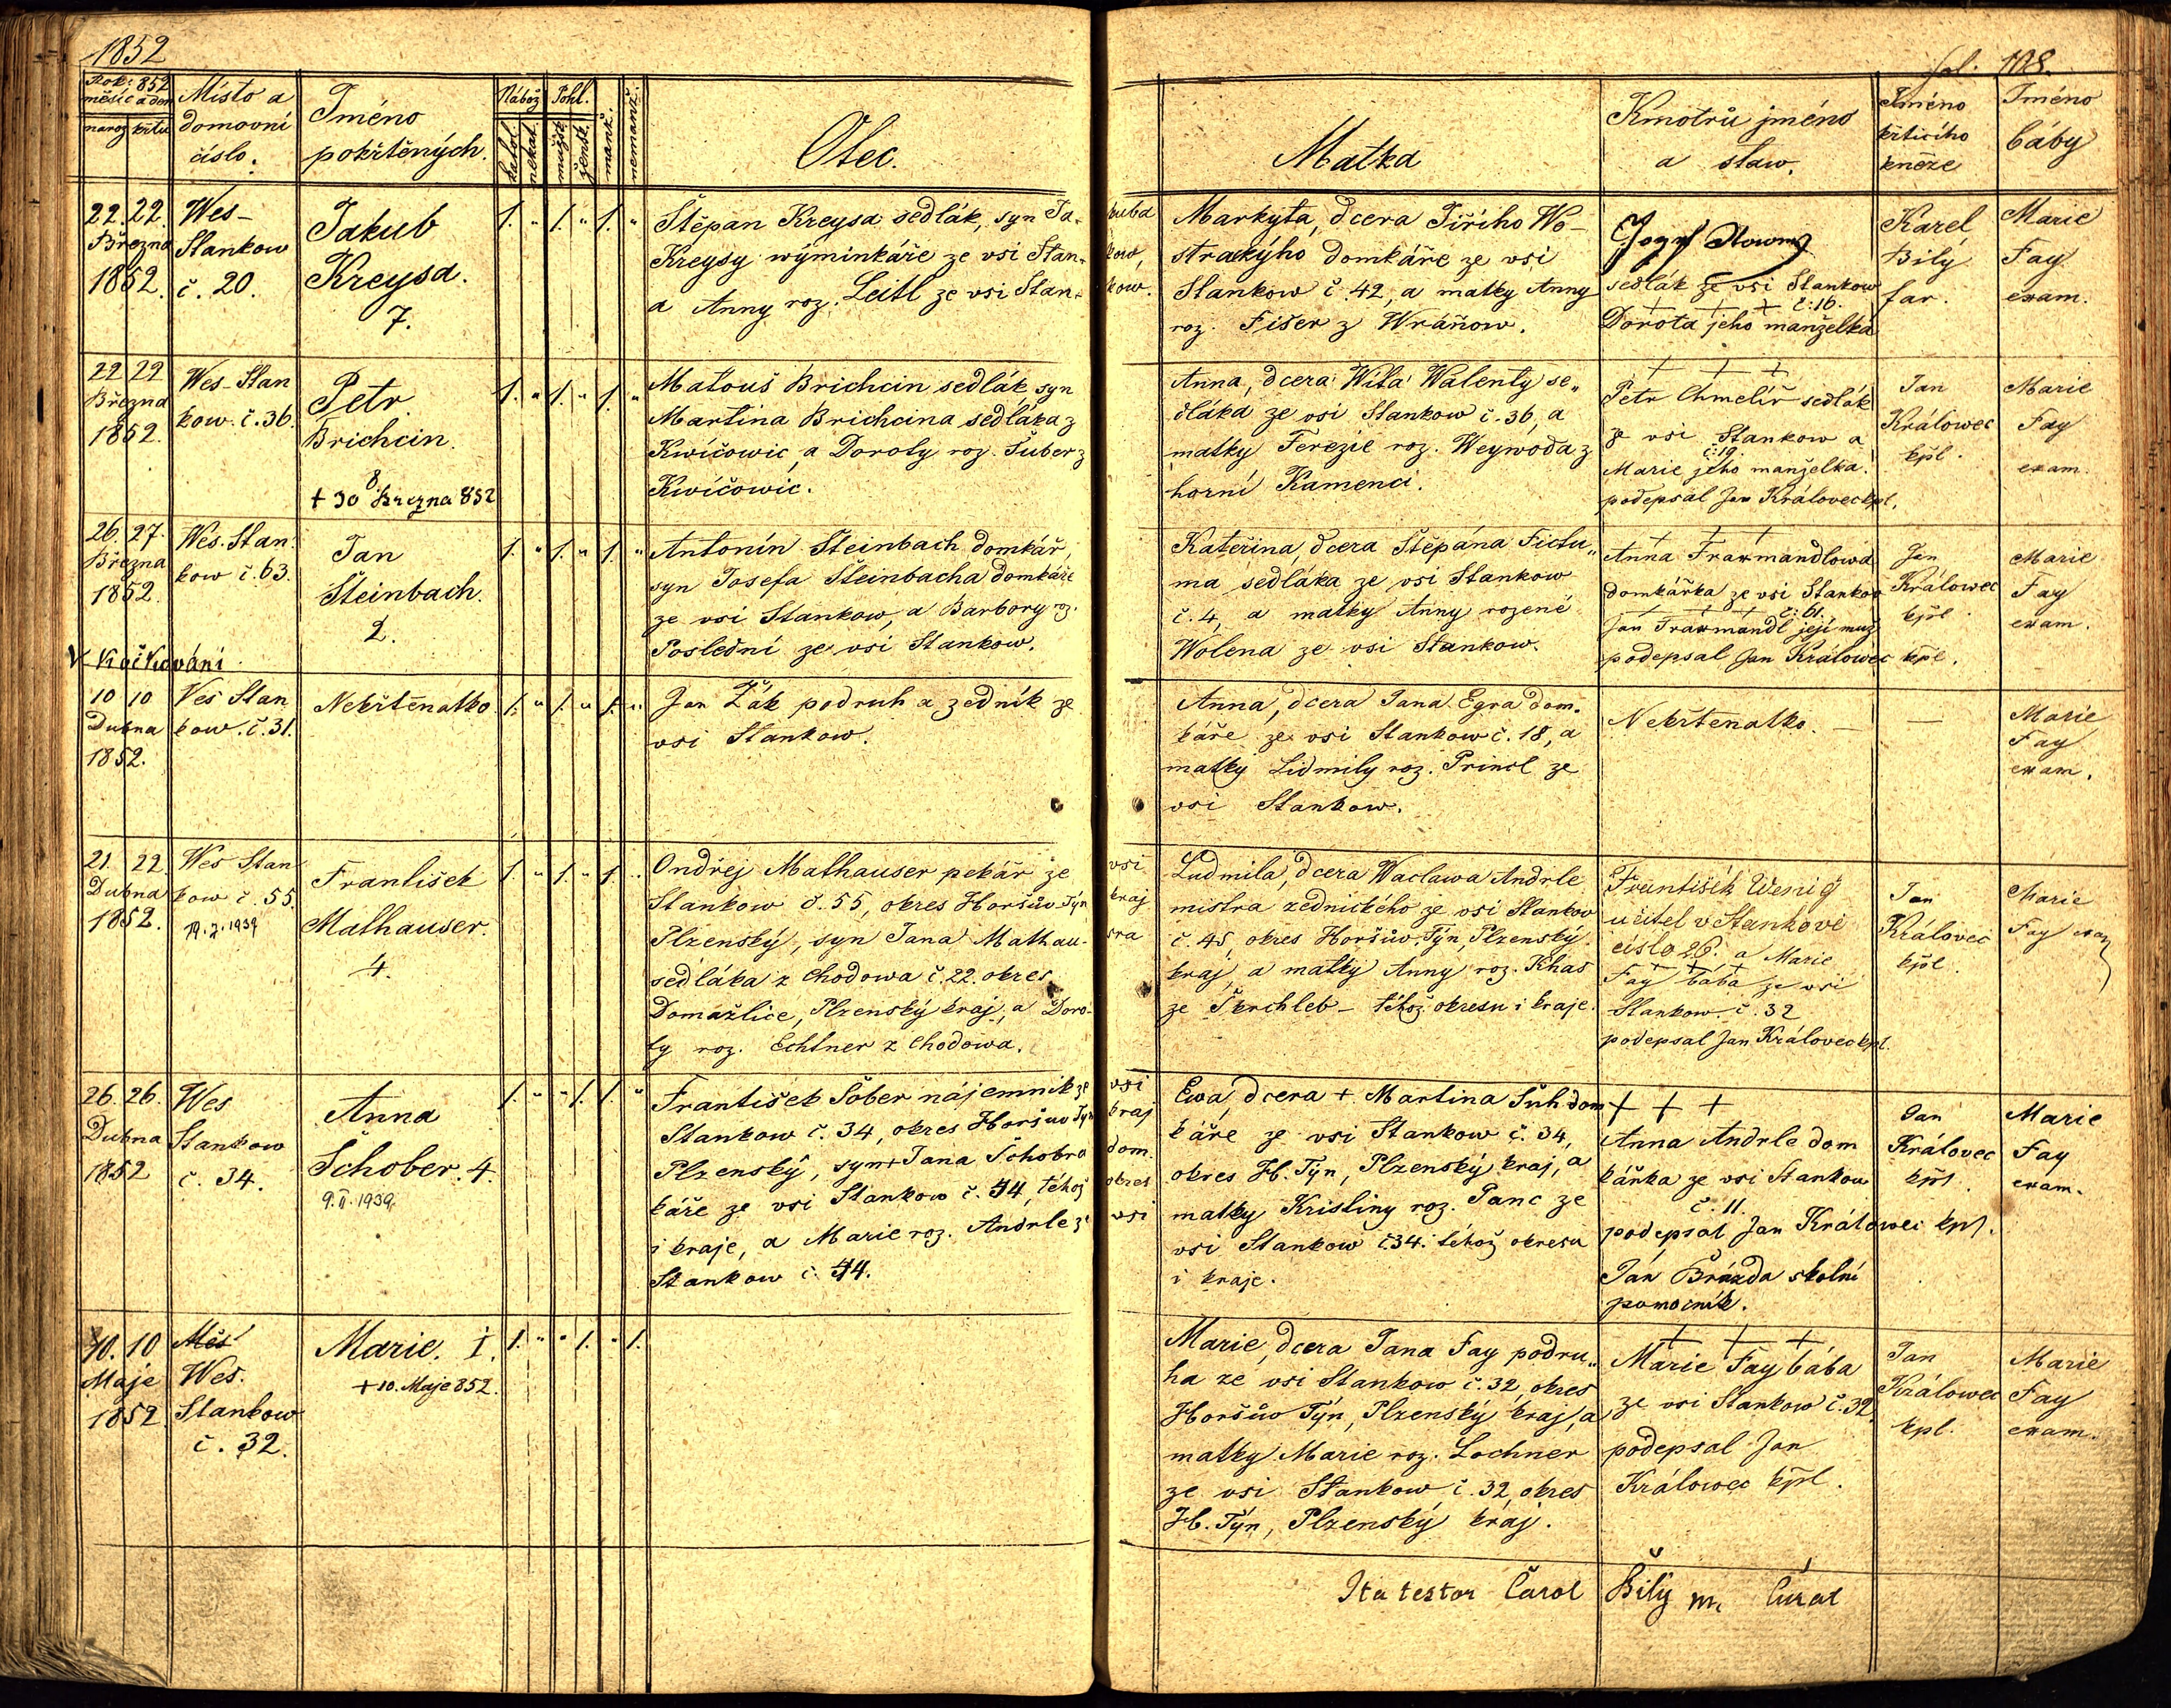 1852
fol. 108.
Rok: 852
měsíc a den
naroz křtu
Místo a
domovní
číslo.
Jméno
pokřtěných.
Nábož. Pohl.
katol.
nekat.
mužsk.
žensk.
manž.
nemanž.
Otec.
Matka
Kmotrů jméno
a staw.
Jméno
křticího
kněze
Jméno
báby
22. 22.
Března
1852.
Wes-
Stankow
č. 20.
Jakub
Kreysa.
7.
1. " 1. " 1. "
Štěpan Kreysa sedlák, syn Ja- kuba
Kreysy wýminkáře ze vsi Stan- kow,
a Anny roz. Leitl ze vsi Stan- kow.
Markyta, dcera Jiřího Wo-
strackýho domkáře ze vsi
Stankow č. 42, a matky Anny
roz. Fišer z Wráňow.
sedlák ze vsi Stankow
+ + + č: 16.
Dorota jeho manželka
Karel
Bílý
far.
Marie
Fay
exam.
22 22
Března
1852.
Wes-Stan
kow. č. 36.
Petr
Brichcin.
8
+ 30 Března 852
1. " 1. " 1. "
Matouš Brichcin sedlák, syn
Martina Brichcina sedláka z
Kwíčowic, a Doroty roz. Šuber z
Kwíčowic.
Anna, dcera Wíta Walenty se"
dláka ze vsi Stankow č. 36, a
matky Terezie roz. Weywoda z
horní Kamenci.
+ + +
Petr Chmelíř sedlák
ze vsi Stankow a
č: 19.
Marie jeho manželka.
podepsal Jan Královec kpl.
Jan
Králowec
kpl.
Marie
Fay
exam.
26. 27.
Března
1852.
Wes. Stan.
kow č. 63.
Jan
Šteinbach.
2.
V Kočkováni
1. " 1. " 1. "
Antonín Šteinbach domkář,
syn Josefa Šteinbacha domkáře
ze vsi Stankow, a Barbory roz.
Poslední ze vsi Stankow.
Kateřina, dcera Štěpána Fictu"
ma sedláka ze vsi Stankow
č. 4, a matky Anny rozené
Wolena ze vsi Stankow.
+ + +
Anna Trawmandlowa
domkářka ze vsi Stankow
+ + + č: 61.
Jan Trawmandl její muž
podepsal Jan Králowec kpl.
Jan
Králowec
kpl
Marie
Fay
exam.
10 10
Dubna
1852.
Ves Stan
kow. č. 31.
Nekřtěnatko
1. " 1. " 1. "
Jan Žák podruh a zedník ze
vsi Stankow.
Anna, dcera Jana Egra dom-
káře ze vsi Stankow č. 18, a
matky Lidmily roz. Princl ze
vsi Stankow.
Nekřtenatko. —
—
Marie
Fay
exam.
21. 22
Dubna
1852.
Wes Stan
kow č. 55.
František
Mathauser.
4.
1. " 1. " 1. "
Ondřej Mathauser pekář ze vsi
Stankow č. 55, okres Horšůw Týn kraj
Plzenský, syn Jana Mathau- sra
sedláka z Chodowa č. 22. okres
Domažlice, Plzenský kraj, a Doro-
ty roz. Echtner z Chodowa.
Ludmila, dcera Waclawa Andrle
mistra zednického ze vsi Stankow
č. 45, okres Horšůw. Týn, Plzenský
kraj, a matky Anny roz. Khas
ze Škrchleb - téhož okresu i kraje.
František Wenig
učitel v Stankově
čislo 26. a Marie
+ + +
Fay bába ze vsi
Stankow č. 32
podepsal Jan Královec kpl.
Jan
Královec
kpl.
Marie
Fay exam
26. 26.
Dubna
1852
Wes
Stankow
č. 34.
Anna
Schober. 4.
9. II. 1939.
1. " " 1. 1. "
František Šober nájemník ze vsi
Stankow č. 34, okres Horšuw Týn kraj
Plzenský, syn + Jana Schobra dom.
káře ze vsi Stankow č. 44, téhož okres
i kraje, a Marie roz. Andrle ze vsi
Stankow č. 44.
Ewa, dcera + Martina Suh dom
káře ze vsi Stankow č. 34,
okres H. Týn, Plzenský kraj, a
matky Kristiny roz. Panc ze
vsi Stankow č 34. téhož okresu
i kraje.
+ + +
Anna Andrle dom
kářka ze vsi Stankow
č. 11.
podepsal Jan Králowec kpl.
Ján Brázda školní
pomocník.
Jan
Královec
kpl.
Marie
Fay
exam.
10. 10
Máje
1852
Měs
Wes.
Stankow
č. 32.
Marie. 1.
+ 10. Maje 852.
1. " " 1. " 1.
Marie, dcera Jana Fay podru"
ha ze vsi Stankow č. 32, okres
Horšůw Týn, Plzenský kraj, a
matky Marie roz. Lochner
ze vsi Stankow č. 32, okres
H. Týn, Plzenský kraj.
+ + +
Marie Fay bába
ze vsi Stankow č. 32.
podepsal Jan
Králowec kpl.
Jan
Králowec
kpl.
Marie
Fay
exam.
Ita testor Carol Bílý